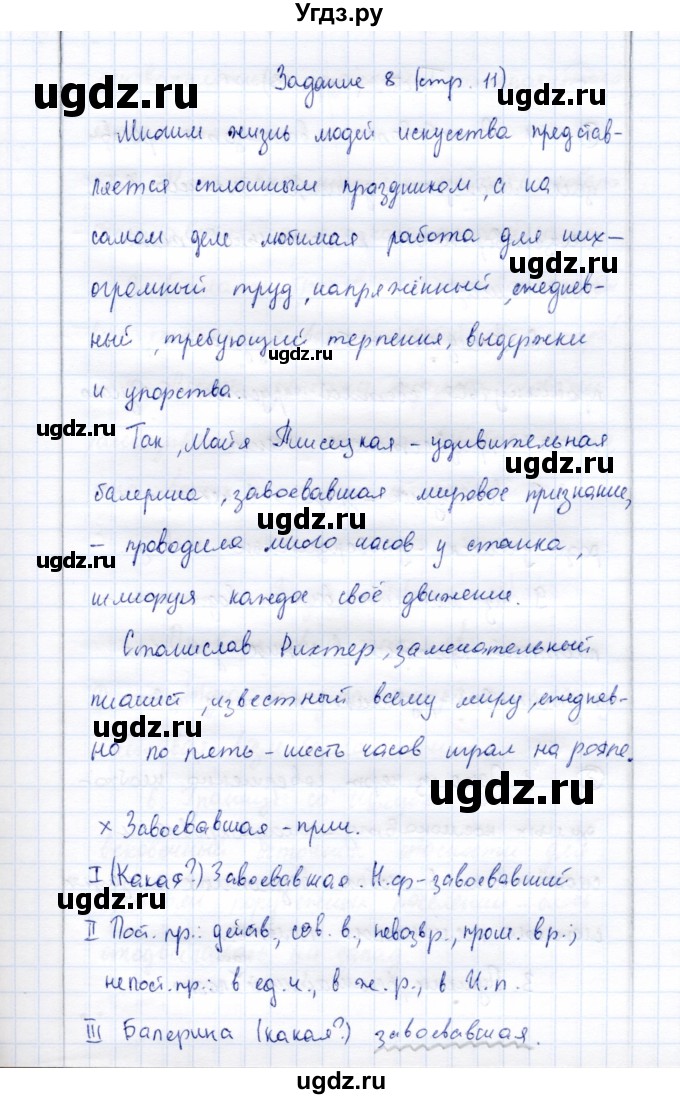 Угдз.ру
Задание 8 (стр. 11)
ugdz.ru
Многим жизнь людей искусства представ-
ляется сплошным праздником, а на
самом деле любимая работа для них –
ugdz.ru
огромный труд, напряжённый, ежеднев-
ный, требующий терпения, выдержки
ugdz.ru
и упорства.
ugdz.ru
Так, Майя Плисецкая – удивительная
ugdz.ru
балерина, завоевавшая мировое признание,
ugdz.ru
– проводила много часов у станка,
ugdz.ru
шлифуя каждое своё движение.
Станислав Рихтер, замечательный
пианист, известный всему миру, ежеднев-
ugdz.ru
но по пять – шесть часов играл на рояле.
ugdz.ru
х Завоевавшая – прич.
I (Какая?) Завоевавшая. Н.ф – завоевавший
ugdz.ru
II Пост. пр.: действ., сов. в., невозвр., прош. вр.;
непост. пр.: в ед. ч., в ж. р., в И. п.
III Балерина (какая?) завоевавшая.
ugdz.ru